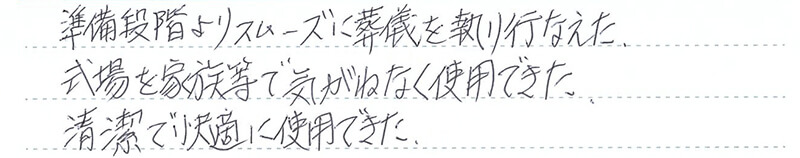 準備段階よりスムーズに葬儀を執り行なえた.
式場を家族等で気がねなく使用できた.
清潔で快適に使用できた.